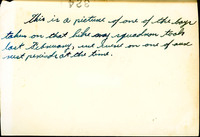 324
This is a picture of one of the boys
taken on that hike my squadron took
last February, we were on one of our
rest periods at the time.